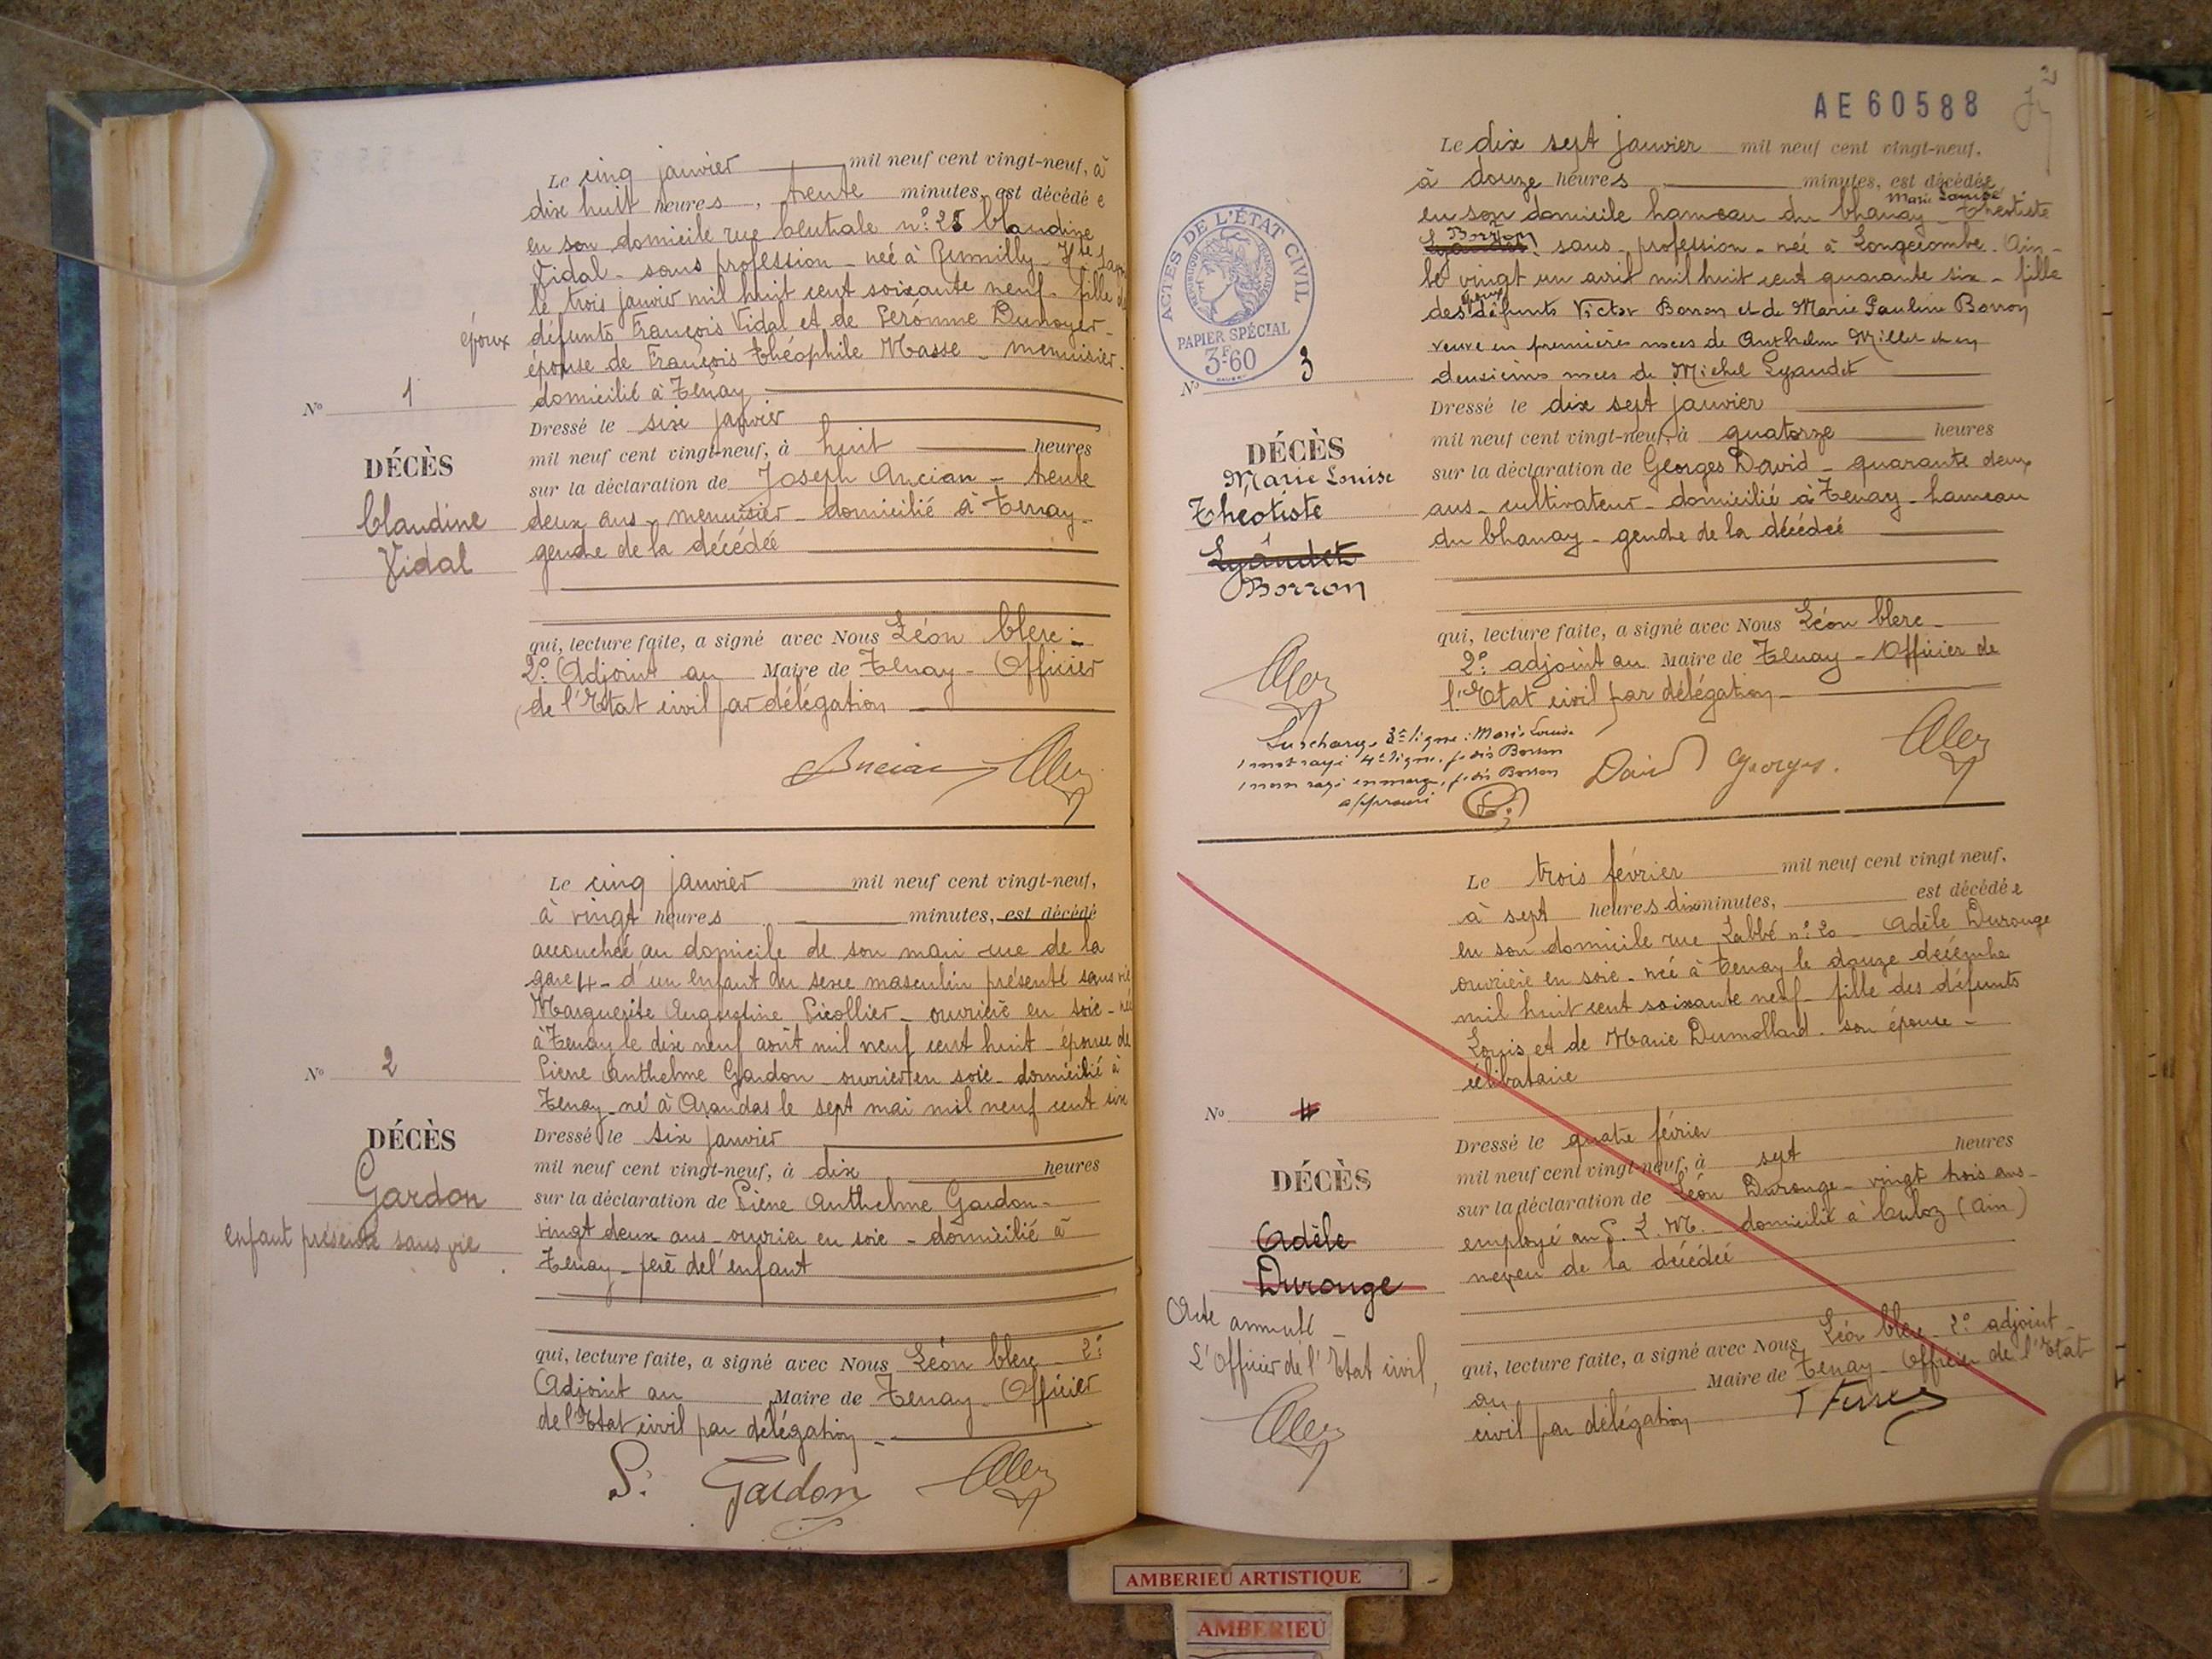 Le cinq janvier mil neuf cent vingt-neuf, à
dix huit heures, trente minutes, est décédé e
en son domicile rue Centrale n° 28 Claudine
Vidal - sans profession - née à Rumilly - Hte
le trois janvier mil huit cent soixante neuf - fille
époux défunts François Vidal et de Péronne Dunoyer -
épouse de François Théophile Masse - menuisier -
domicilié à Tenay
N° 1
Dressé le six janvier
mil neuf cent vingt-neuf, à huit heures
DÉCÈS
sur la déclaration de Joseph Ancian - trente
Claudine
deux ans - menuisier - domicilié à Tenay -
Vidal
gendre de la décédée
qui, lecture faite, a signé avec Nous Léon Clerc -
2e Adjoint au Maire de Tenay - Officier
de l'Etat civil par délégation
Ancian
Le cinq janvier mil neuf cent vingt-neuf,
à vingt heures minutes, est décédé
accouchée au domicile de son mari rue de la
gare 4 - d'un enfant du sexe masculin présenté sans vie
Marguerite Augustine Picollier - ouvrière en soie - née
à Tenay le dix neuf août mil neuf cent huit - épouse de
Pierre Anthelme Gardon - ouvrier en soie - domicilié à
N° 2
Tenay - né à Arandas le sept mai mil neuf cent six
Dressé le six janvier
DÉCÈS
mil neuf cent vingt-neuf, à dix heures
Gardon
sur la déclaration de Pierre Anthelme Gardon -
enfant présenté sans vie
vingt deux ans - ouvrier en soie - domicilié à
Tenay - père de l'enfant
qui, lecture faite, a signé avec Nous Léon Clerc 2e
Adjoint au Maire de Tenay - Officier
de l'Etat civil par délégation -
P. Gardon
2
AE 60588
Le dix sept janvier mil neuf cent vingt-neuf,
à douze heures minutes, est décédée
Marie Louise
en son domicile hameau du Chanay - Théotiste
Borron
Lyaudet sans profession - née à Longecombe - Ain -
le vingt un avril mil huit cent quarante six - fille
des défunts Victor Borron et de Marie Pauline Borron
veuve en premières noces de Anthelme Millet et en
deuxième noces de Michel Lyaudet
ACTES DE L'ÉTAT CIVIL
RÉPUBLIQUE FRANÇAISE
PAPIER SPÉCIAL
3F60
N° 3
Dressé le dix sept janvier
mil neuf cent vingt-neuf, à quatorze heures
DÉCÈS
sur la déclaration de Georges David - quarante deux
Marie Louise
Théotiste
ans - cultivateur - domicilié à Tenay - hameau
Lyaudet
du Chanay - gendre de la décédée
Borron
qui, lecture faite, a signé avec Nous Léon Clerc -
2e adjoint au Maire de Tenay - Officier de
l'Etat civil par délégation -
Surcharge 3e ligne : Marie Louise
1 mot rayé 4e ligne, je dis Borron
1 nom rayé en marge, je dis Borron
approuvé
David Georges.
Le trois février mil neuf cent vingt neuf,
à sept heures dix minutes, est décédé e
en son domicile rue Labbé n° 20 - Adèle Durouge
ouvrière en soie - née à Tenay le douze décembre
mil huit cent soixante neuf - fille des défunts
Louis et de Marie Dumollard - son épouse -
célibataire
N° 4
Dressé le quatre février
mil neuf cent vingt-neuf, à sept heures
DÉCÈS
sur la déclaration de Léon Durouge - vingt trois ans -
Adèle
employé au P. L. M. - domicilié à Culoz (Ain)
Durouge
neveu de la décédée
Acte annulé -
L'Officier de l'Etat civil,
qui, lecture faite, a signé avec Nous Léon Clerc - 2e adjoint -
au Maire de Tenay - Officier de l'Etat
civil par délégation
AMBERIEU ARTISTIQUE
AMBERIEU